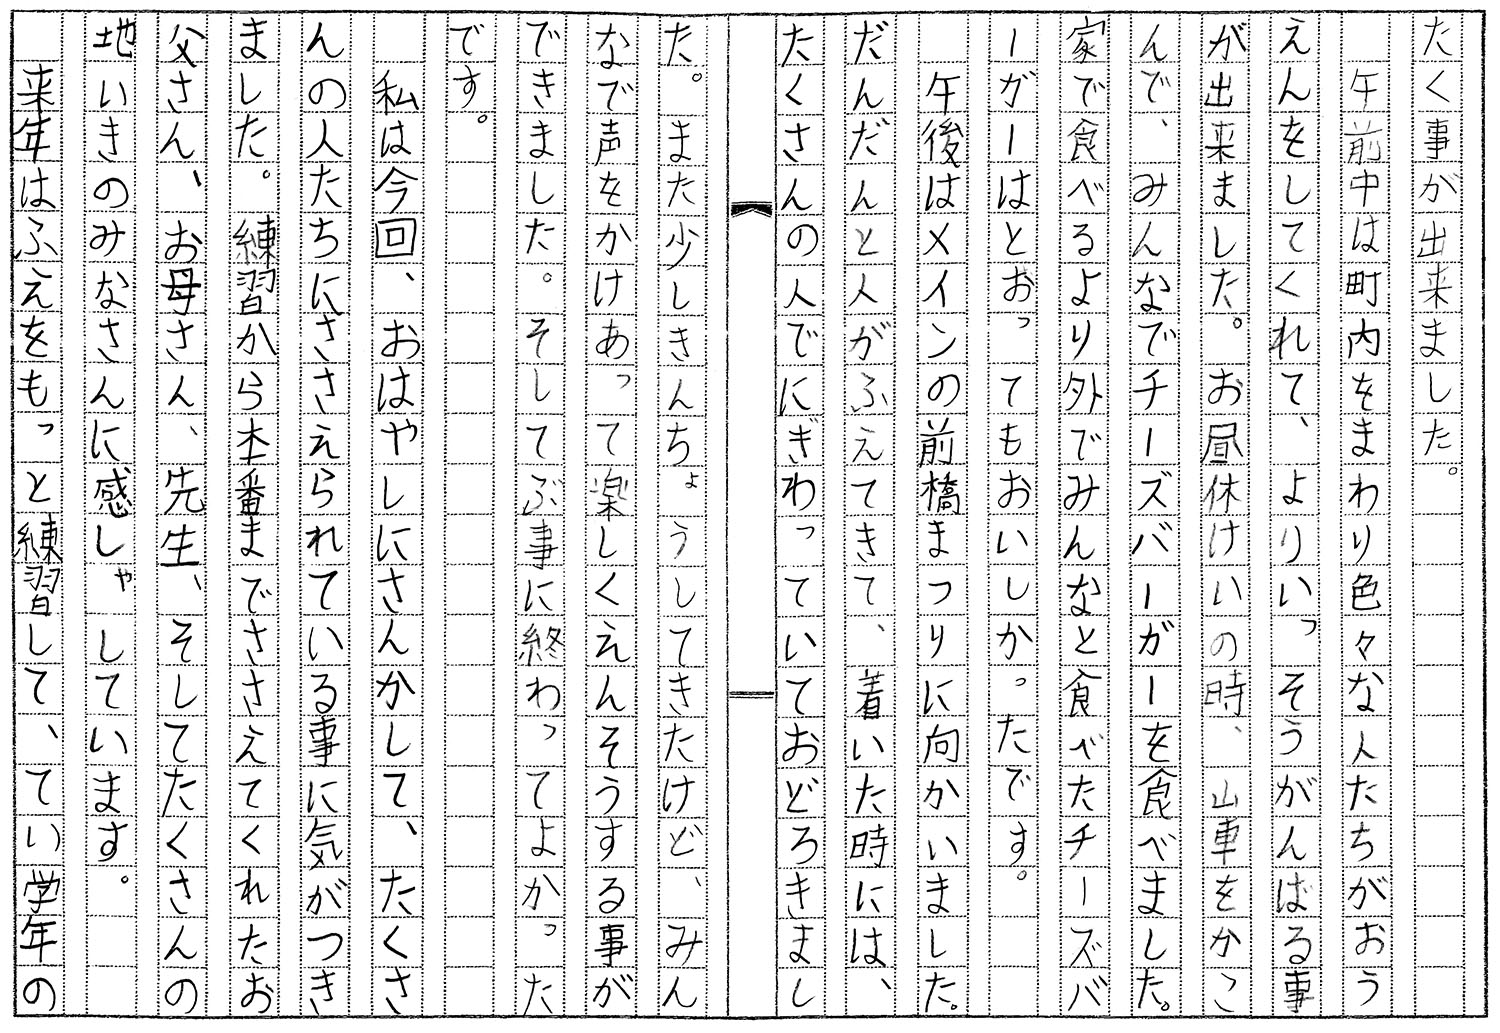 たく事が出来ました。
午前中は町内をまわり色々な人たちがおう
えんをしてくれて、よりいっそうがんばる事
が出来ました。お昼休けいの時、山車をかこ
んで、みんなでチーズバーガーを食べました。
家で食べるより外でみんなと食べたチーズバ
ーガーはとおってもおいしかったです。
午後はメインの前橋まつりに向かいました。
だんだんと人がふえてきて、着いた時には、
たくさんの人でにぎわっていておどろきまし
た。また少しきんちょうしてきたけど、みん
なで声をかけあって楽しくえんそうする事が
できました。そしてぶ事に終わってよかった
です。
私は今回、おはやしにさんかして、たくさ
んの人たちにささえられている事に気がつき
ました。練習から本番までささえてくれたお
父さん、お母さん、先生、そしてたくさんの
地いきのみなさんに感しゃしています。
来年はふえをもっと練習して、てい学年の